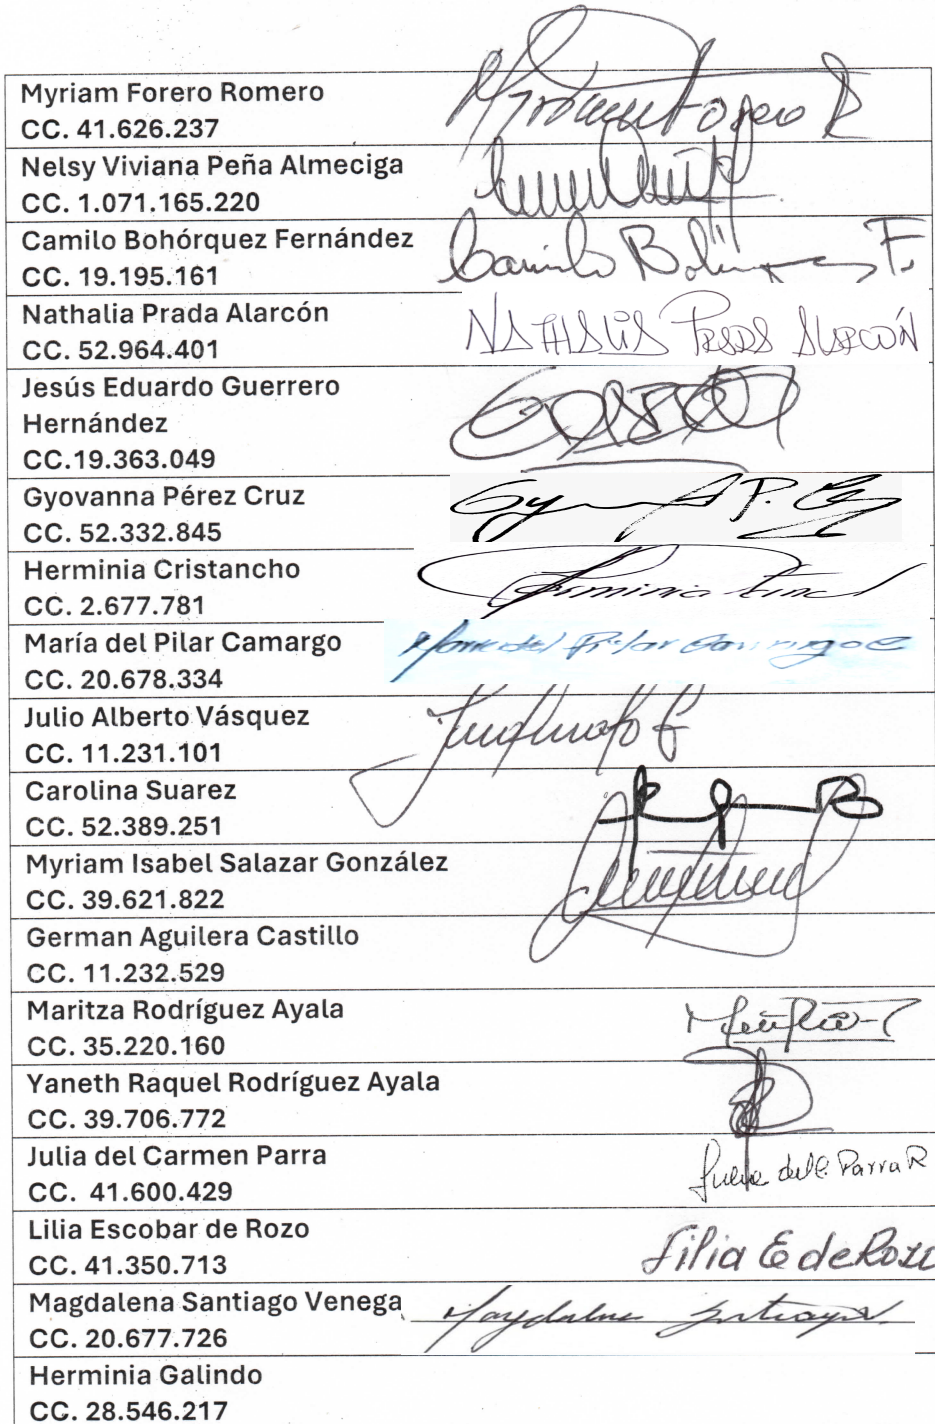 Myriam Forero Romero
CC. 41.626.237
Nelsy Viviana Peña Almeciga
CC. 1.071.165.220
Camilo Bohórquez Fernández
CC. 19.195.161
Camilo Bohórquez F.
Nathalia Prada Alarcón
CC. 52.964.401
NATHALIA PRADA ALARCÓN
Jesús Eduardo Guerrero
Hernández
CC.19.363.049
Gyovanna Pérez Cruz
CC. 52.332.845
Herminia Cristancho
CC. 2.677.781
Herminia
María del Pilar Camargo
CC. 20.678.334
Maria del Pilar Camargo C
Julio Alberto Vásquez
CC. 11.231.101
Carolina Suarez
CC. 52.389.251
Myriam Isabel Salazar González
CC. 39.621.822
German Aguilera Castillo
CC. 11.232.529
Maritza Rodríguez Ayala
CC. 35.220.160
Yaneth Raquel Rodríguez Ayala
CC. 39.706.772
Julia del Carmen Parra
CC. 41.600.429
Julia del C. Parra R
Lilia Escobar de Rozo
CC. 41.350.713
Lilia E de Rozo
Magdalena Santiago Venega
CC. 20.677.726
Magdalena Santiago
Herminia Galindo
CC. 28.546.217